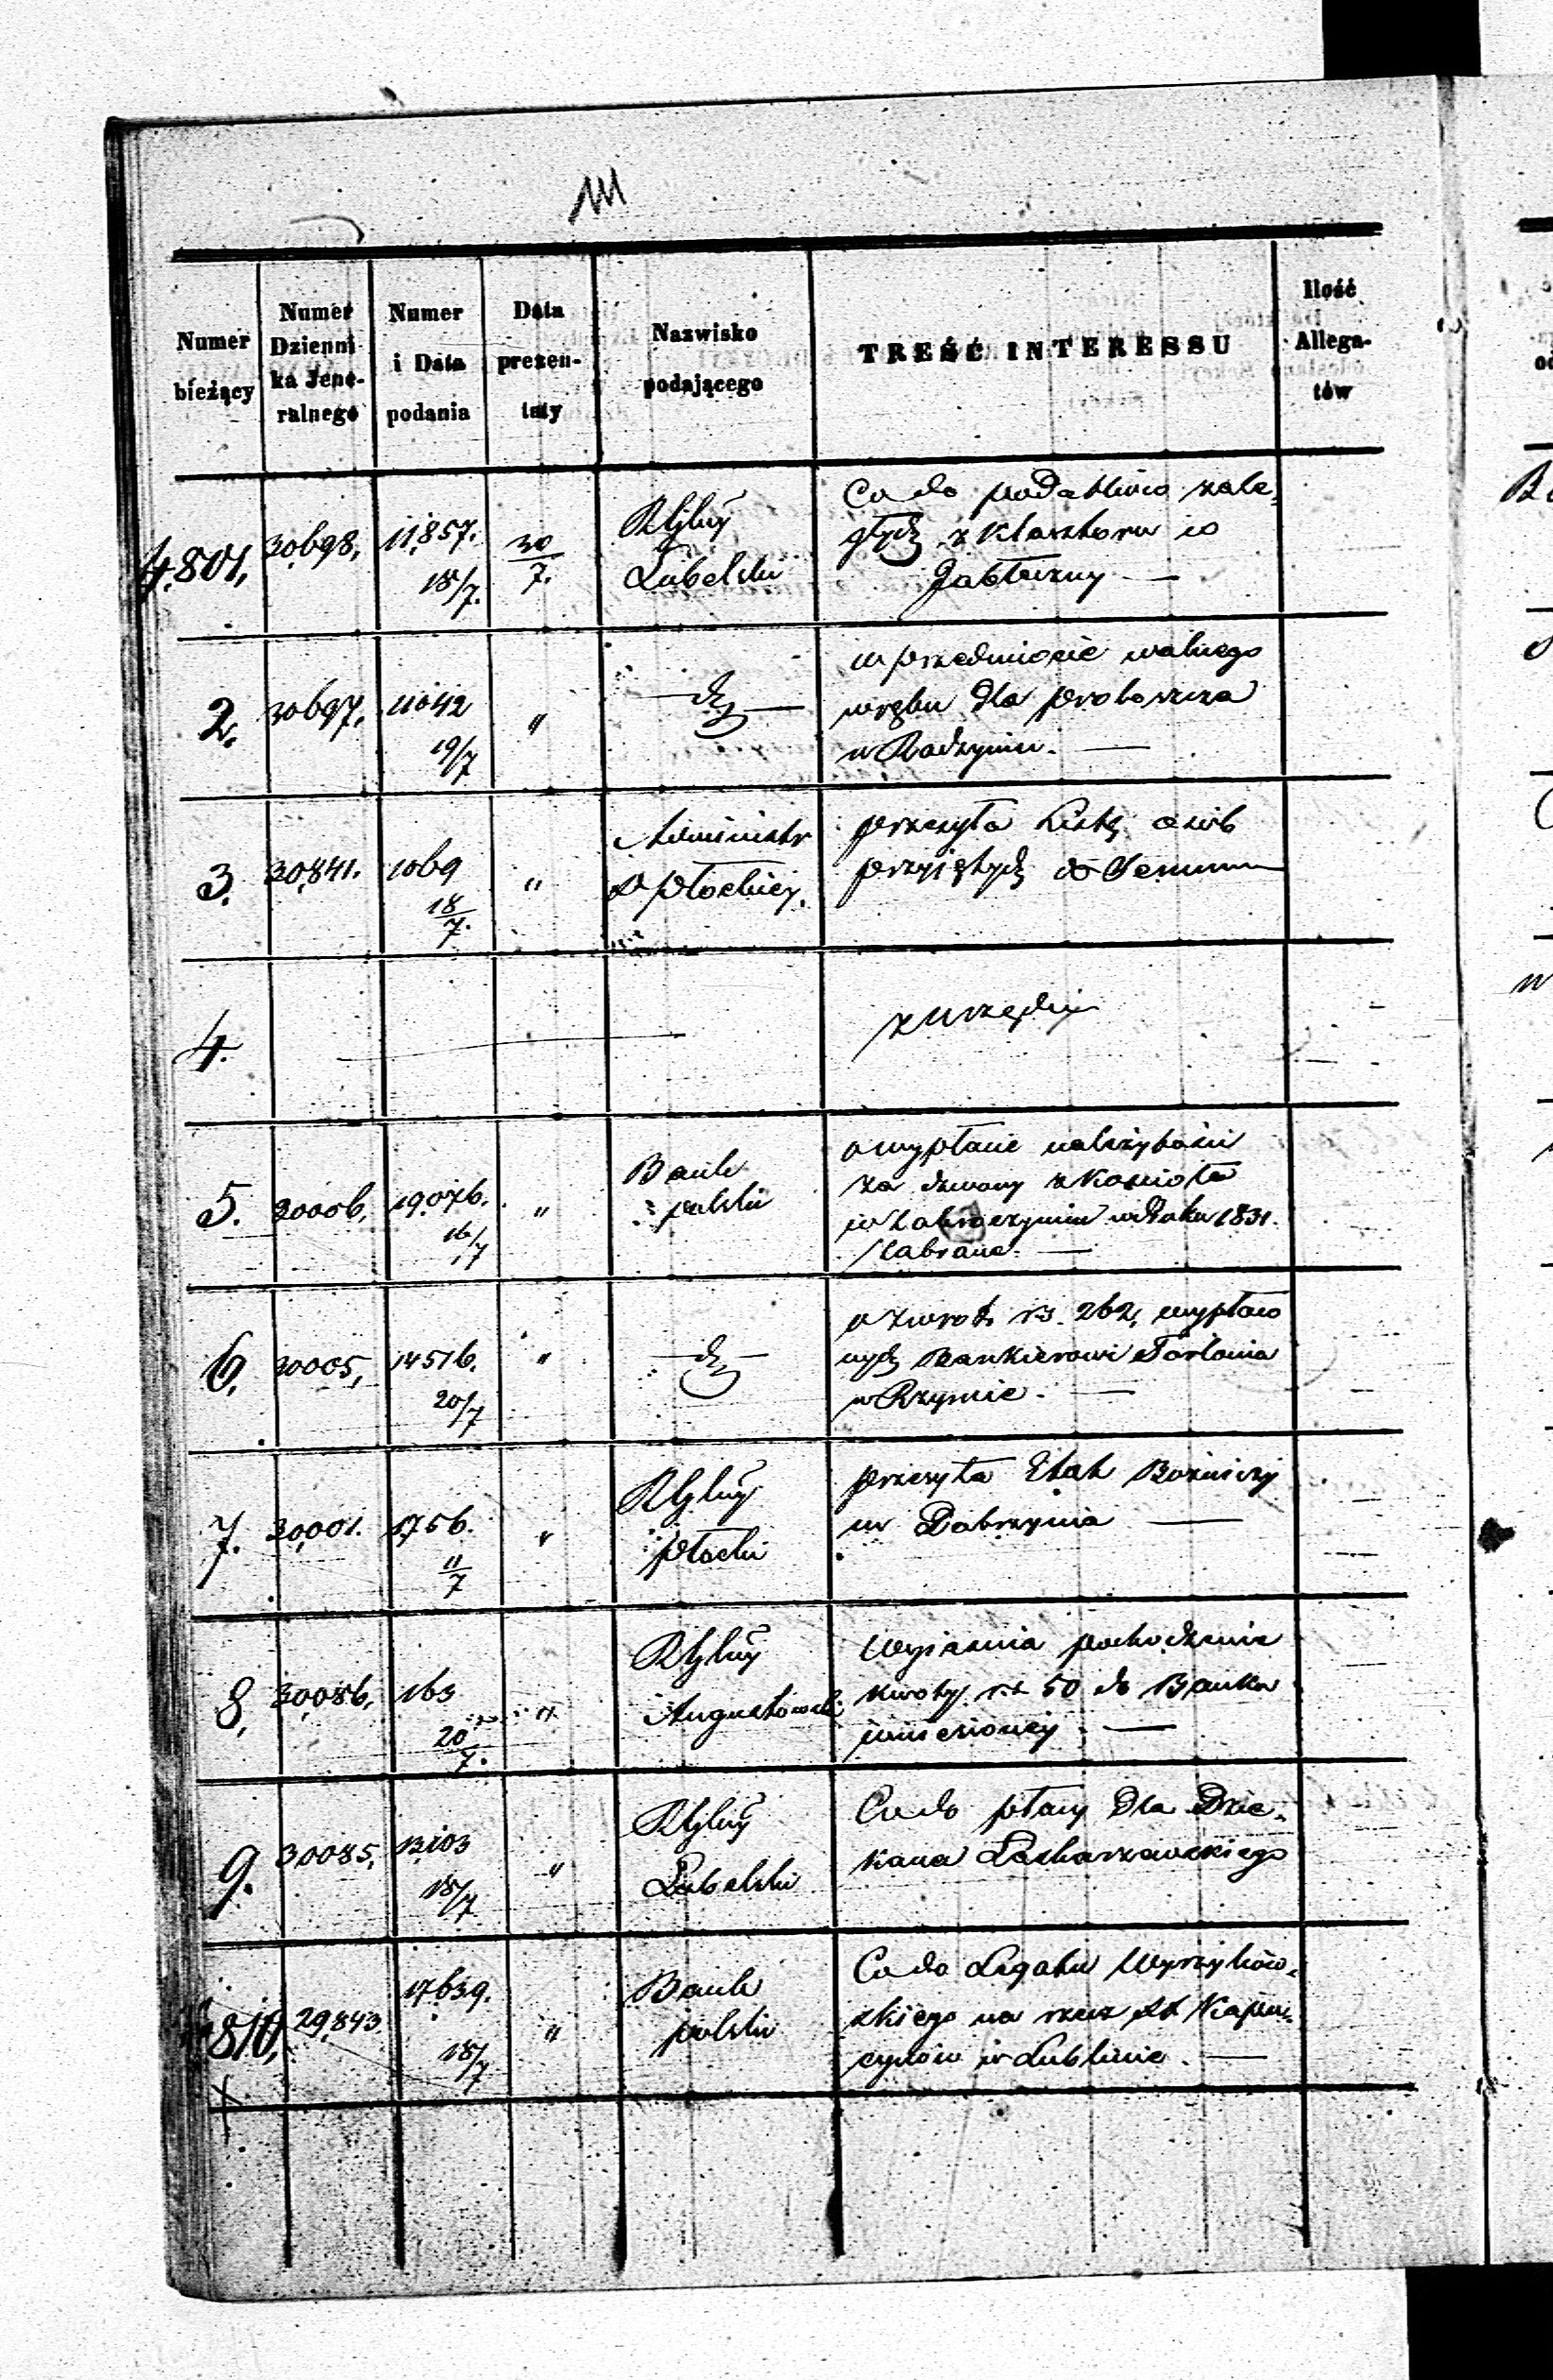 Numer
bieżący
Numer
Dzienni-
ka Jene-
ralnego
Numer
i Data
podania
Data
prezen-
taty
Nazwisko
podającego
TREŚĆ INTERESSU
Ilość
Allega-
tów
4.801. 30698. 11,857. 18/7. 30/7.
Lubelski
Co do podatków zale-
głych z Klasztoru w
Jabłeczny —
2. 30697. 11042 19/7 "
w przedmiocie wolnego
wrębu dla proboszcza
w Radzyniu. —
3. 30841. 1069 18/7. "
Administr
D płockiej.
przesyła Listę osób
przyjętych do Semin
4.
z urzędu
5. 30006. 19.076. 16/7 "
Bank
polski
o wypłacie należytości
za dzwony z Kościoła
w Zakroczymiu w Roku 1831.
zabrane. —
6. 30005, 14516. 20/7 "
o zwrot rs. 262, wypłaco
nych Bankierowi Torlonia
w Rzymie. —
7. 30,001. 1756. 11/7 "
płocki
przesyła Etat Bożniczy
w Dobrzynia —
8. 30,086, 163 20/7. "
Augustowski
Wyjaśnia pochodzenie
kwoty rs. 50 do Banku
wniesionej. —
9. 30085, 13103 18/7 "
Lubelski
Co do płacy dla Dzie-
kana
4810, 29,843 17639. 18/7 "
Bank
polski
Co do Legatu Wyrzyków-
skiego na rzecz XX Kapu-
cynów w Lublinie. —